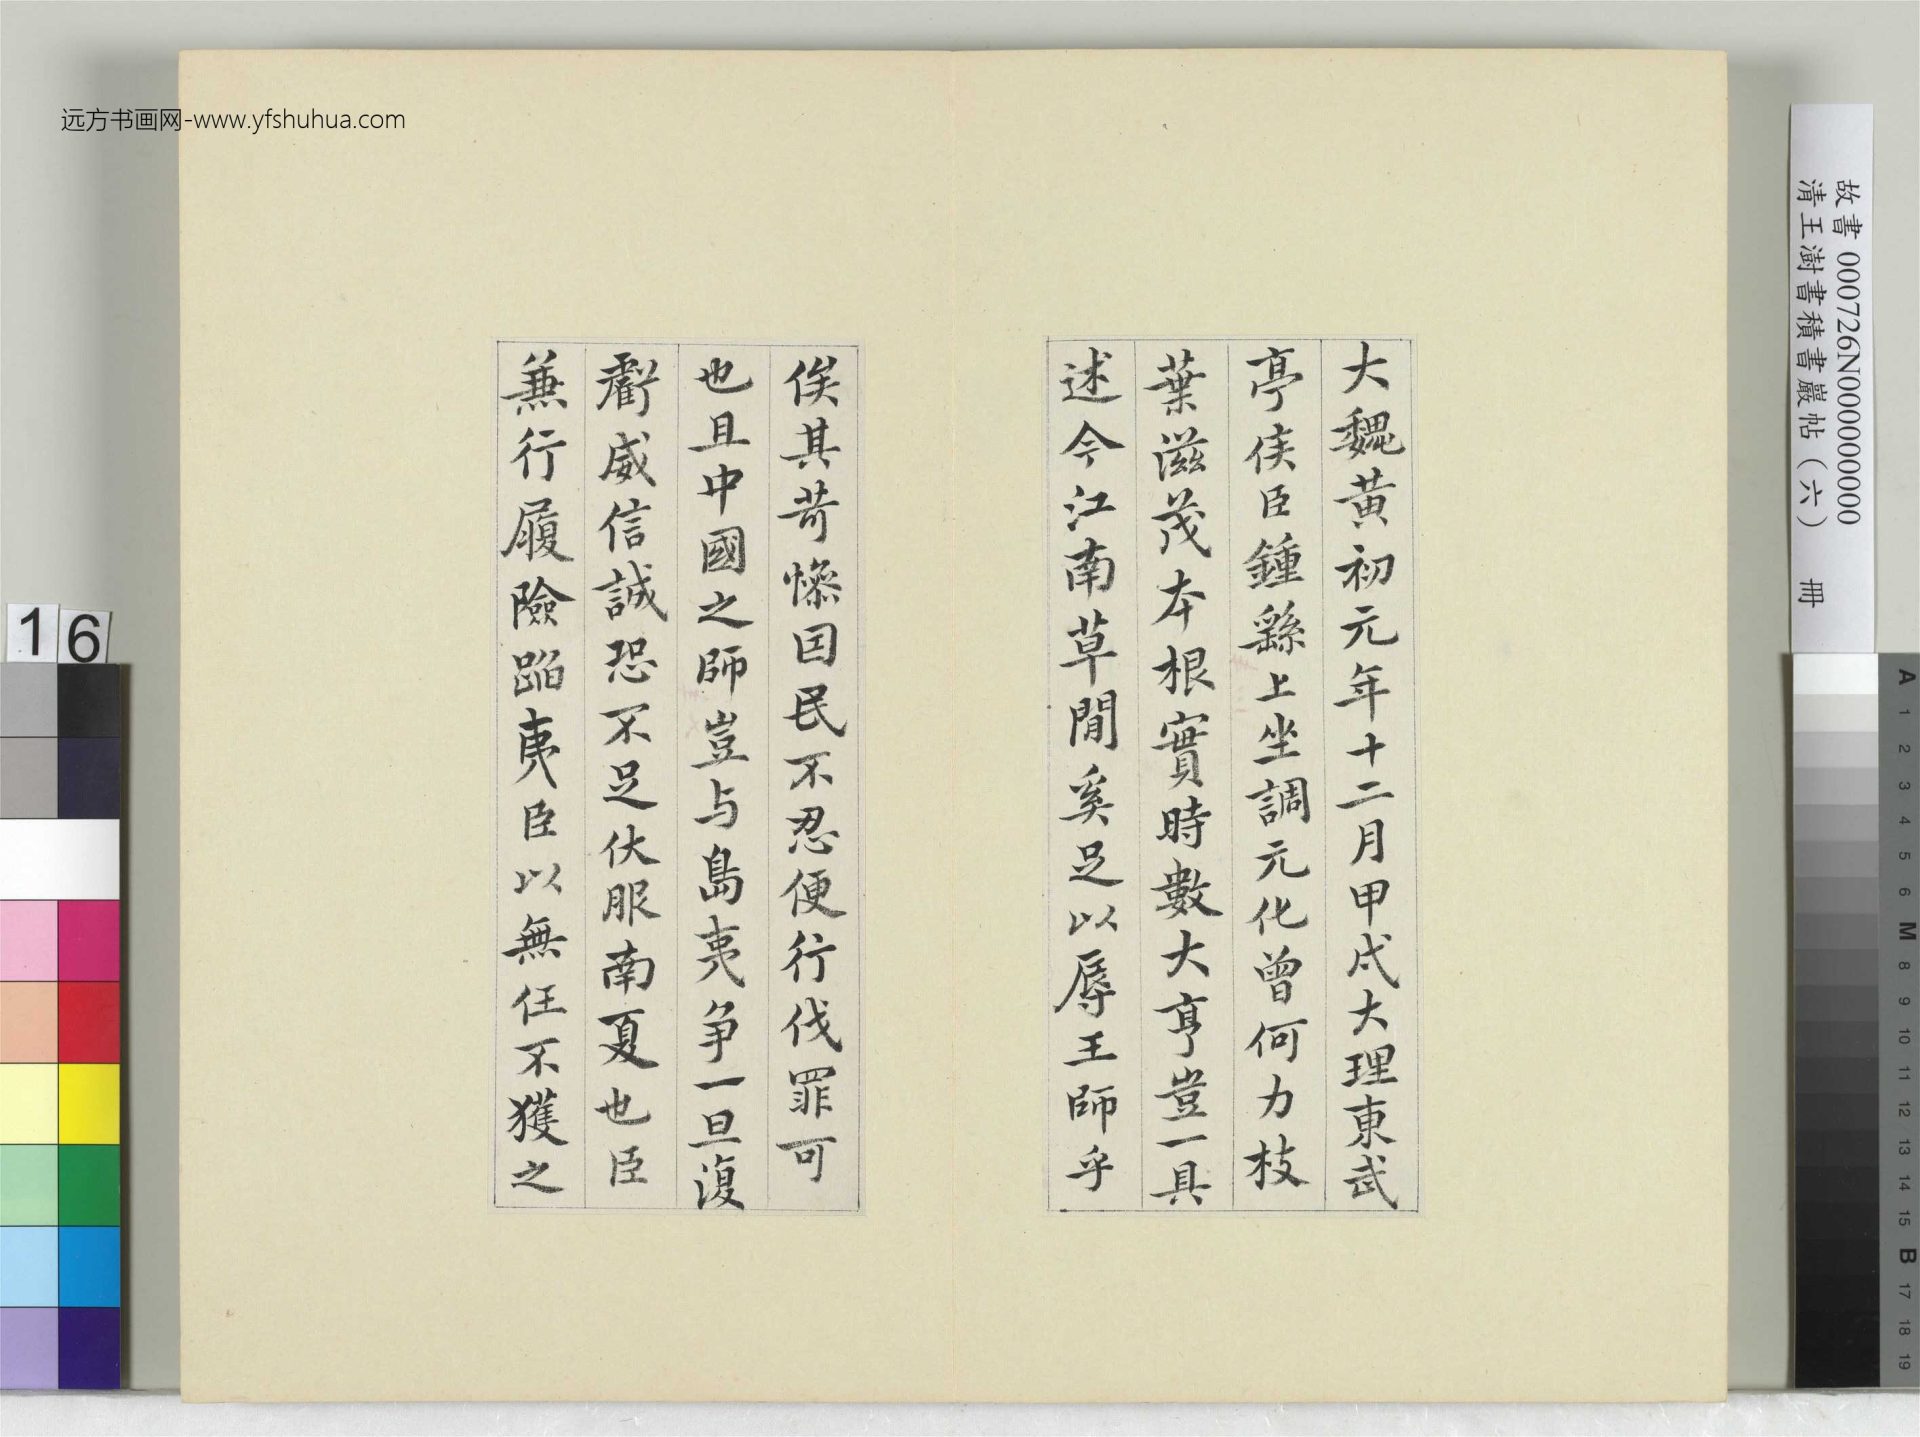 远方书画网-www.yfshuhua.com
大魏黃初元年十二月甲戌大理東武
亭侯臣鍾繇上坐調元化曾何力枝
葉滋茂本根實時數大亨豈一具
述今江南草間奚足以辱王師乎
俟其苛慘因民不忍便行伐罪可
也且中國之師豈与島夷争一旦復
虧威信誠恐不足伏服南夏也臣
兼行履險蹈夷臣以無任不獲之
故書000726N000000000
清王澍書積書巖帖(六) 冊
16
A 1 2 3 4 5 6 M 8 9 10 11 12 13 14 15 B 17 18 19